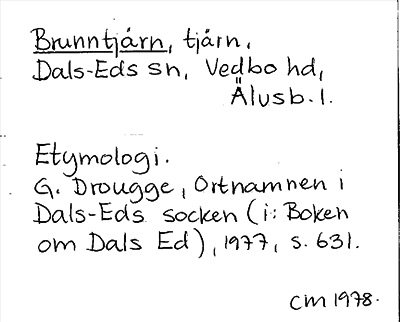 Brunntjärn, tjärn.
Dals-Eds sn, Vedbo hd,
Älvsb. l.
Etymologi.
G. Drougge, Ortnamnen i
Dals-Eds socken (i: Boken
om Dals Ed), 1977, s. 631.
CM 1978.